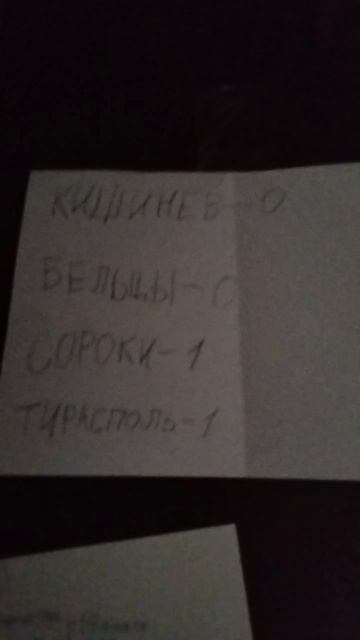 КИШИНЕВ-0
БЕЛЬЦЫ-0
СОРОКИ-1
ТИРАСПОЛЬ-1